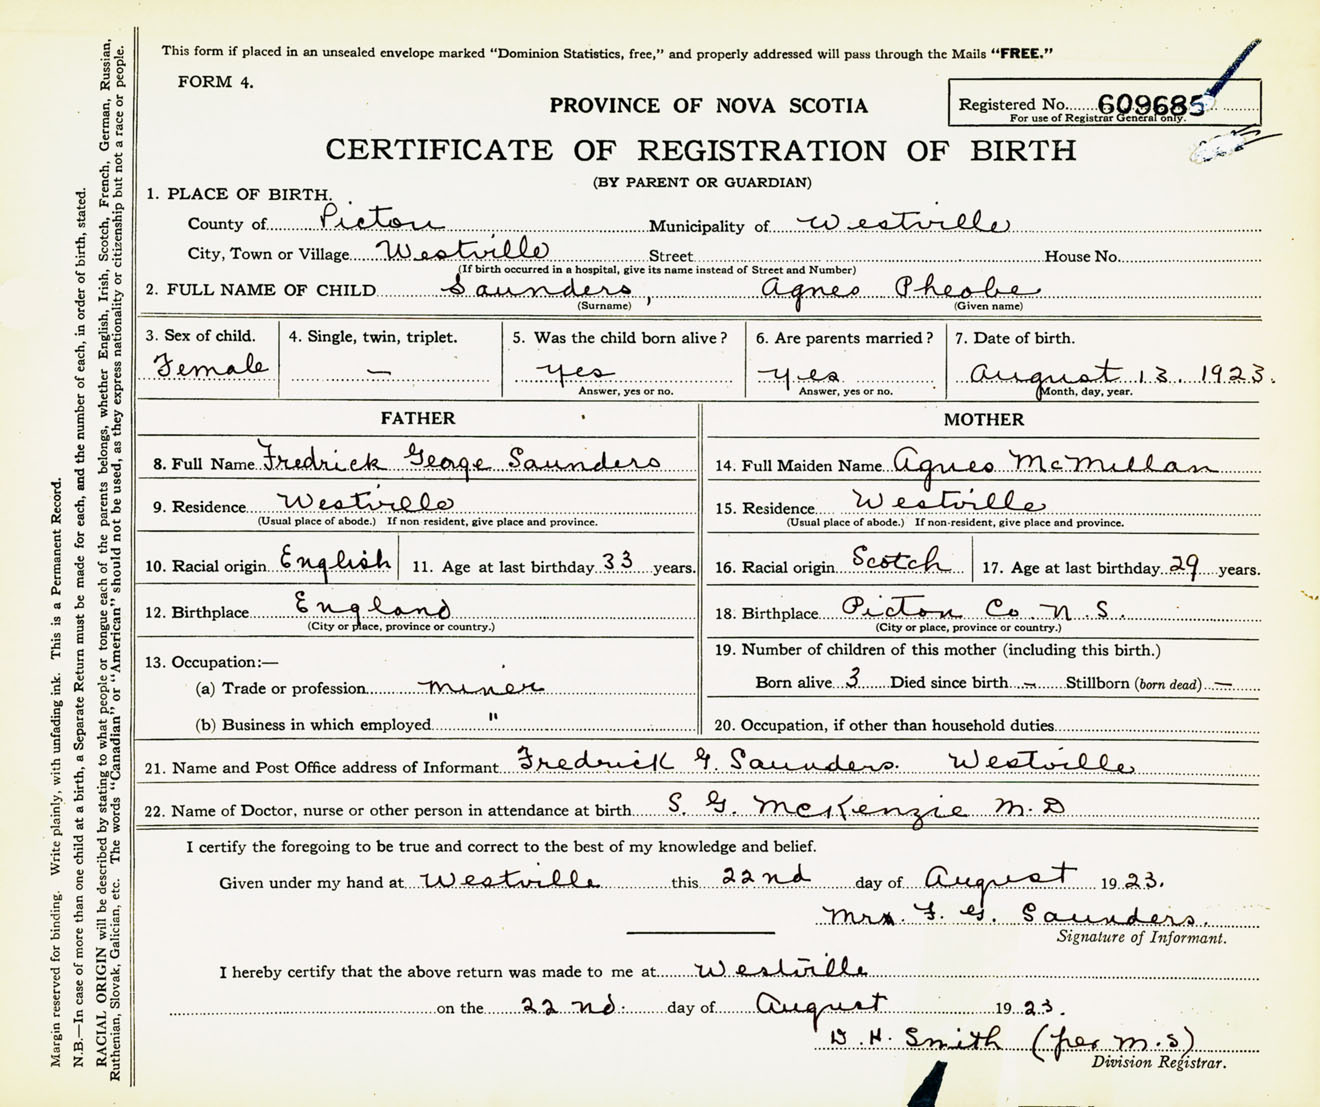 This form if placed in an unsealed envelope marked "Dominion Statistics, free," and properly addressed will pass through the Mails "FREE."
FORM 4.
PROVINCE OF NOVA SCOTIA
Registered No. 609685
For use of Registrar General only.
CERTIFICATE OF REGISTRATION OF BIRTH
(BY PARENT OR GUARDIAN)
1. PLACE OF BIRTH.
County of Pictou Municipality of Westville
City, Town or Village Westville Street House No.
(If birth occurred in a hospital, give its name instead of Street and Number)
2. FULL NAME OF CHILD Saunders, Agnes Pheobe
(Surname) (Given name)
3. Sex of child. 4. Single, twin, triplet. 5. Was the child born alive? 6. Are parents married? 7. Date of birth.
Female — yes yes August 13. 1923.
Answer, yes or no. Answer, yes or no. Month, day, year.
FATHER MOTHER
8. Full Name Fredrick George Saunders 14. Full Maiden Name Agnes McMillan
9. Residence Westville 15. Residence Westville
(Usual place of abode.) If non resident, give place and province. (Usual place of abode.) If non-resident, give place and province.
10. Racial origin English 11. Age at last birthday 33 years. 16. Racial origin Scotch 17. Age at last birthday 29 years.
12. Birthplace England 18. Birthplace Picton Co. N.S.
(City or place, province or country.) (City or place, province or country.)
13. Occupation:— 19. Number of children of this mother (including this birth.)
(a) Trade or profession miner Born alive 3 Died since birth — Stillborn (born dead) —
(b) Business in which employed " 20. Occupation, if other than household duties
21. Name and Post Office address of Informant Fredrick G. Saunders. Westville
22. Name of Doctor, nurse or other person in attendance at birth S. G. McKenzie M.D
I certify the foregoing to be true and correct to the best of my knowledge and belief.
Given under my hand at Westville this 22nd day of August 1923.
Mrs. F. G. Saunders.
Signature of Informant.
I hereby certify that the above return was made to me at Westville
on the 22nd. day of August 1923.
D. H. Smith (per M.S)
Division Registrar.
Margin reserved for binding. Write plainly, with unfading ink. This is a Permanent Record.
N.B.—In case of more than one child at a birth, a Separate Return must be made for each, and the number of each, in order of birth, stated.
RACIAL ORIGIN will be described by stating to what people or tongue each of the parents belongs, whether English, Irish, Scotch, French, German, Russian,
Ruthenian, Slovak, Galician, etc. The words "Canadian" or "American" should not be used, as they express nationality or citizenship but not a race or people.